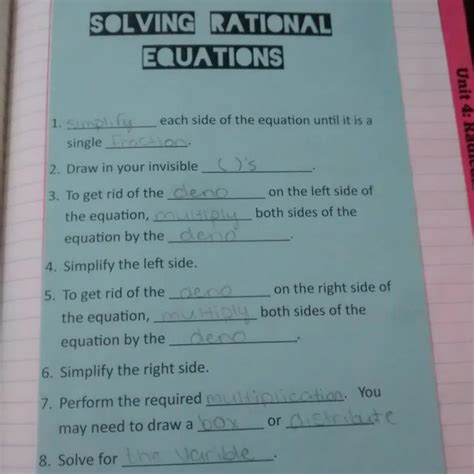 SOLVING RATIONAL
EQUATIONS
1. simplify each side of the equation until it is a
single fraction.
2. Draw in your invisible ( )'s.
3. To get rid of the deno on the left side of
the equation, multiply both sides of the
equation by the deno.
4. Simplify the left side.
5. To get rid of the deno on the right side of
the equation, multiply both sides of the
equation by the deno.
6. Simplify the right side.
7. Perform the required multiplication. You
may need to draw a box or distribute
8. Solve for the varible.
Unit 4: